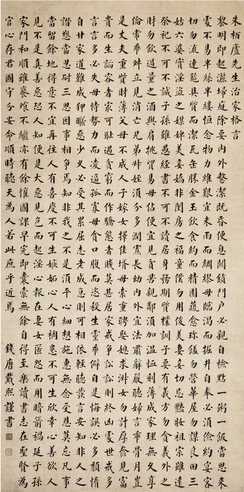 朱柏廬先生治家格言
黎明即起灑掃庭除要內外整潔既昏便息關鎖門戶必親自檢點一粥一飯當思來
處不易半絲半縷恒念物力維艱宜未雨而綢繆毋臨渴而掘井自奉必須儉約宴客
切勿流連器具質而潔瓦缶勝金玉飲食約而精園蔬愈珍饈勿營華屋勿謀良田三
姑六婆實淫盜之媒婢美妾嬌非閨房之福童僕勿用俊美妻妾切忌艷妝祖宗雖遠
祭祀不可不誠子孫雖愚經書不可不讀居身務期質樸訓子要有義方勿貪意外之
財勿飲過量之酒與肩挑貿易毋佔便宜見貧苦親鄰須加溫恤刻薄成家理無久享
倫常乖舛立見消亡兄弟叔姪須分多潤寡長幼內外宜法肅辭嚴聽婦言乖骨肉豈
是丈夫重貲財薄父母不成人子嫁女擇佳壻毋索重聘娶媳求淑女勿計厚奩見富
貴而生諂容者最可恥遇貧窮而作驕態者賤莫甚居家戒爭訟訟則終凶處世戒多
言言多必失毋恃勢力而凌逼孤寡毋貪口腹而恣殺生靈乖僻自是悔誤必多頹惰
自甘家道難成狎暱惡少久必受其累屈志老成急則可相依輕聽發言安知非人之
譖愬當忍耐三思因事相爭焉知非我之不是須平心細想施惠無念受恩莫忘凡事
當留餘地得意不宜再往人有喜慶不可生妒嫉心人有禍患不可生欣幸心善欲人
見不是真善惡恐人知便是大惡見色而起淫心報在妻女匿怨而用暗箭禍延子孫
家門和順雖饔飧不繼亦有餘歡國課早完即囊橐無餘自得至樂讀書志在聖賢為
官心存君國守分安命順時聽天為人若此庶乎近焉
錢唐戴熙謹書